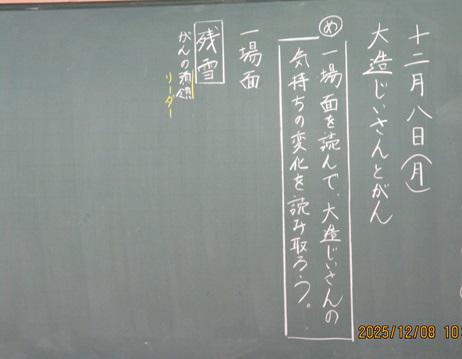 十二月八日(月)
大造じいさんとがん
め 一場面を読んで、大造じいさんの
気持ちの変化を読み取ろう。
一場面
残雪
がんの頭領
リーダー
2025/12/08 10